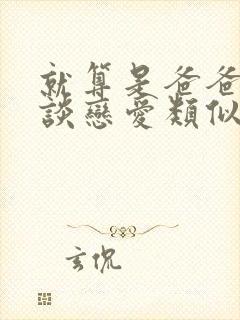 就算是爸爸
談戀愛類似
玄侃